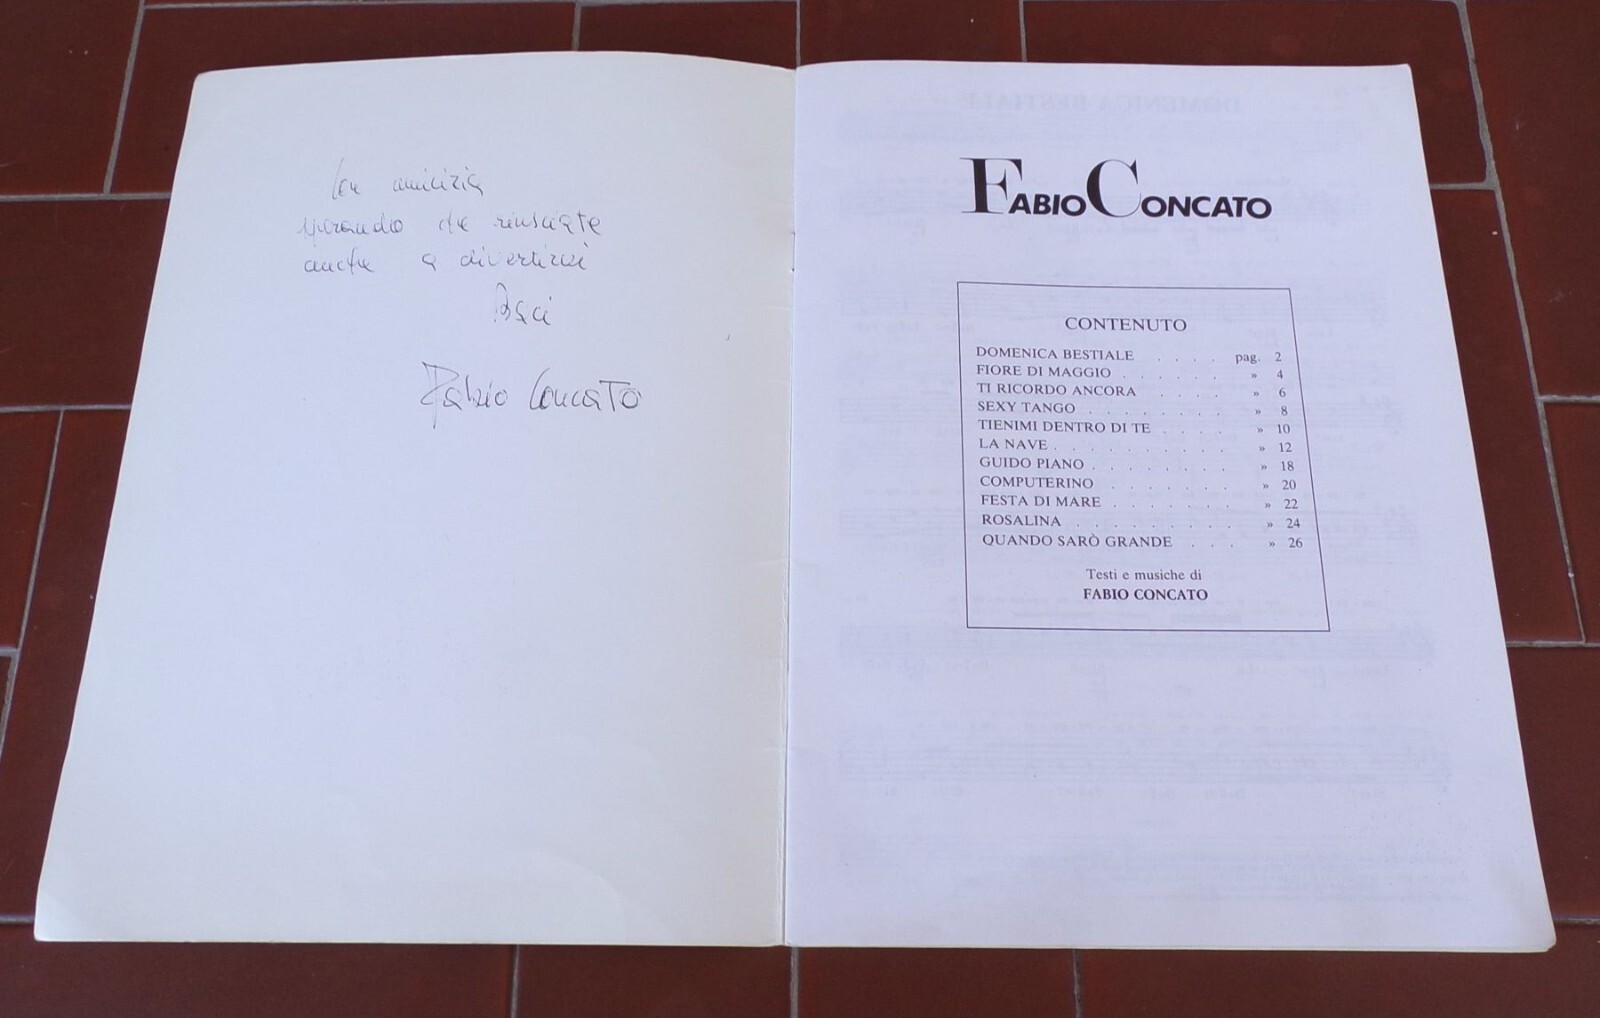 Con amicizia
sperando che riusciate
anche a divertirvi
Baci
Fabio Concato
FABIO CONCATO
CONTENUTO
DOMENICA BESTIALE . . . . pag. 2
FIORE DI MAGGIO . . . . . . » 4
TI RICORDO ANCORA . . . . » 6
SEXY TANGO . . . . . . . . » 8
TIENIMI DENTRO DI TE . . . . » 10
LA NAVE . . . . . . . . . . » 12
GUIDO PIANO . . . . . . . . » 18
COMPUTERINO . . . . . . . » 20
FESTA DI MARE . . . . . . . » 22
ROSALINA . . . . . . . . . » 24
QUANDO SARÒ GRANDE . . . » 26
Testi e musiche di
FABIO CONCATO